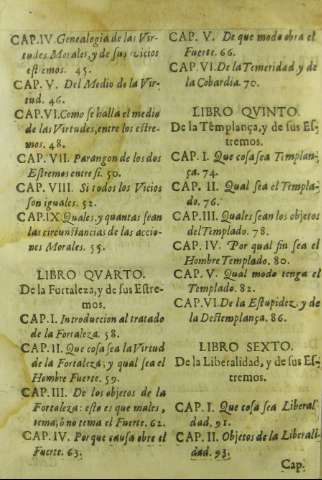 CAP.IV. Genealogia de las Vir-
tudes Morales, y de sus Vicios
estremos. 45.
CAP. V. Del Medio de la Vir-
tud. 46.
CAP.VI. Como se halla el medio
de las Virtudes, entre los estre-
mos. 48.
CAP. VII. Parangon de los dos
Estremos entre si. 50.
CAP. VIII. Si todos los Vicios
son iguales. 52.
CAP.IX. Quales, y quantas sean
las circunstancias de las accio-
nes Morales. 55.
LIBRO QVARTO.
De la Fortaleza, y de sus Estre-
mos.
CAP. I. Introduccion al tratado
de la Fortaleza. 58.
CAP. II. Que cosa sea la Virtud
de la Fortaleza; y qual sea el
Hombre Fuerte. 59.
CAP. III. De los objetos de la
Fortaleza: esto es que males,
tema, ò no tema el Fuerte. 62.
CAP. IV. Porque causa obre el
Fuerte. 63.
CAP. V. De que modo obra el
Fuerte. 66.
CAP. VI. De la Temeridad y de
la Cobardia. 70.
LIBRO QVINTO.
De la Templança, y de sus Es-
tremos.
CAP. I. Que cosa sea Templan-
ça. 74.
CAP. II. Qual sea el Templa-
do. 76.
CAP. III. Quales sean los objetos
del Templado. 78.
CAP. IV. Por qual fin sea el
Hombre Templado. 80.
CAP. V. Qual modo tenga el
Templado. 82.
CAP. VI. De la Estupidez, y de
la Destemplança. 86.
LIBRO SEXTO.
De la Liberalidad, y de sus Es-
tremos.
CAP. I. Que cosa sea Liberal-
dad. 91.
CAP. II. Objetos de la Liberali-
dad. 93.
Cap.